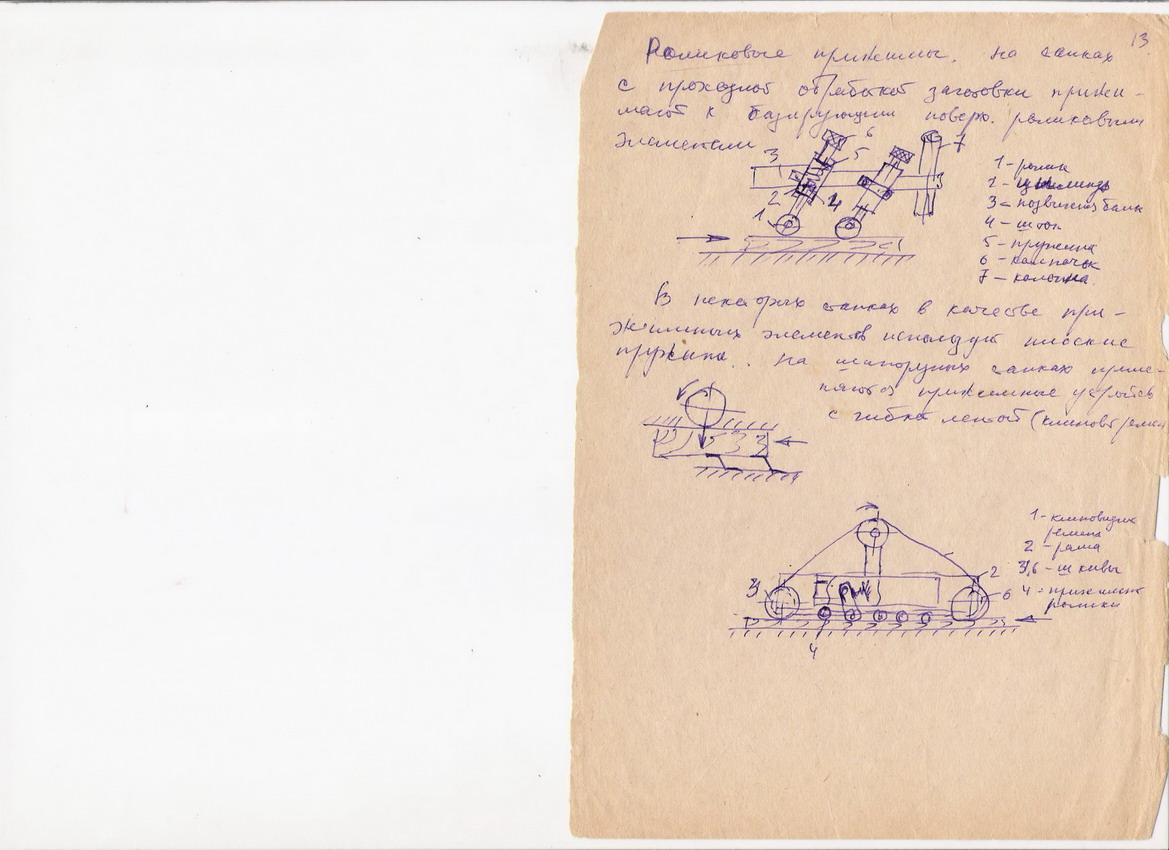 13
Роликовые прижимы. На станках
с проходной обработкой заготовки прижи-
мают к базирующим поверх. роликовыми
элементами
6
7
3
5
3
2
4
1
1 - ролик
2 - цилиндр
3 - подвижная балк
4 - шток
5 - пружина
6 - колпачок
7 - колонка
В некоторых станках в качестве при-
жимных элементов используют плоские
пружины. На шипорезных станках приме-
няются прижимные устройств
с гибкой лентой (клиновой ремен
1 - клиновидн
ремень
2 - рама
3,6 - шкивы
4 - прижимн
ролики
3
2
6
4